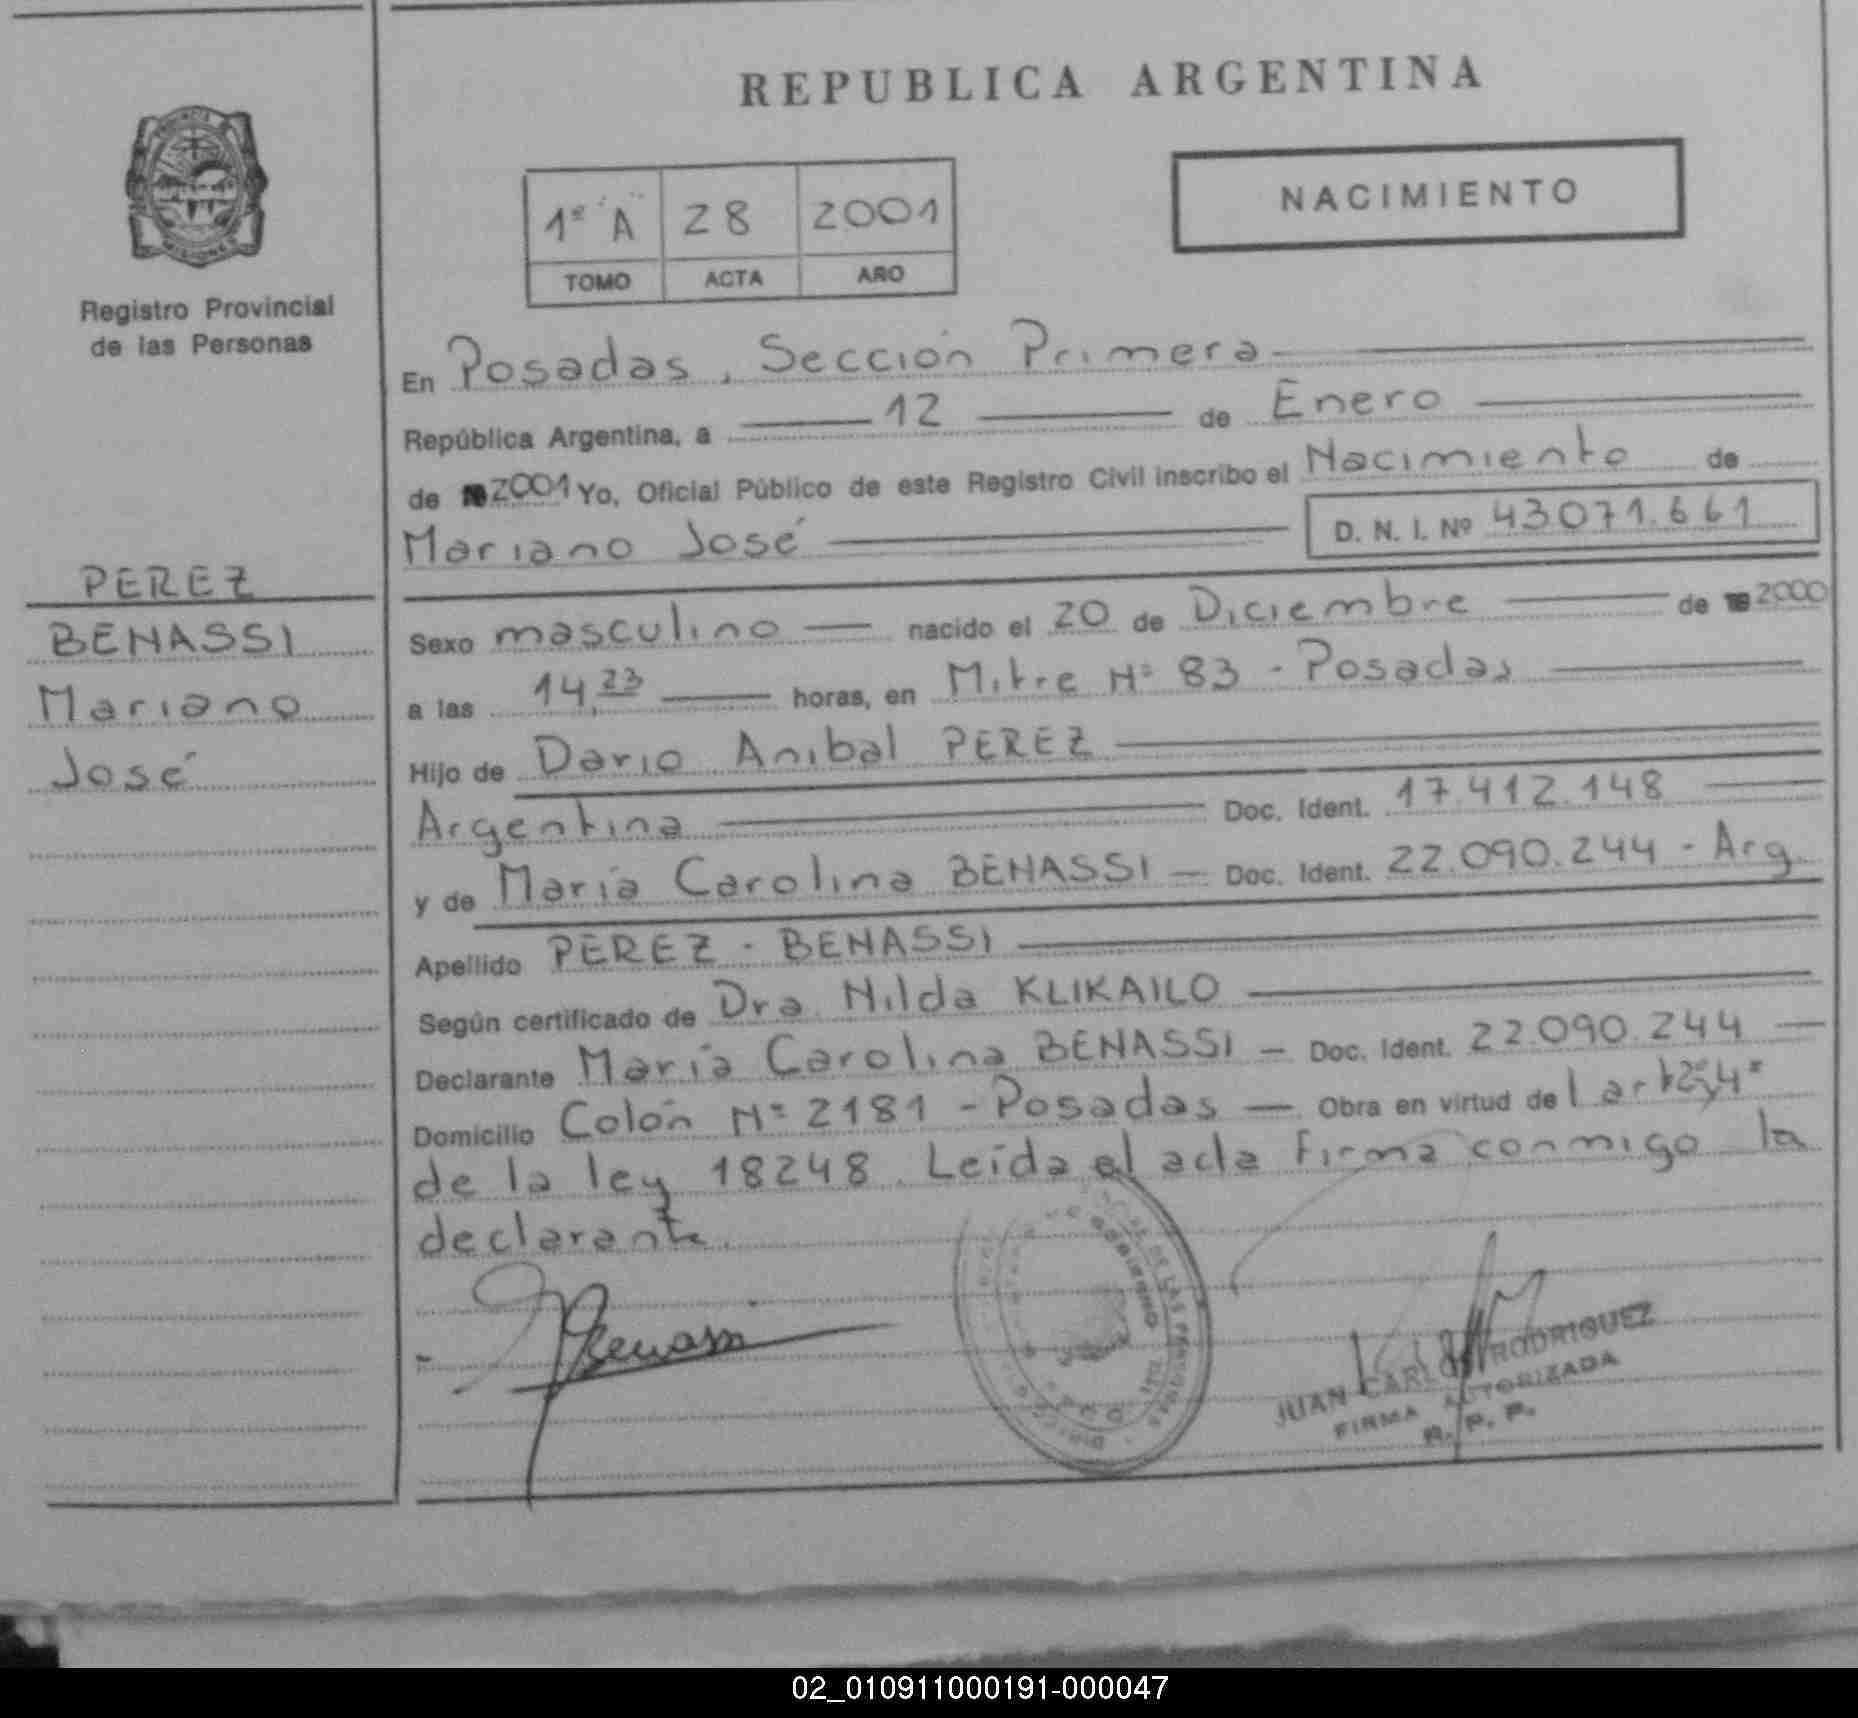 REPUBLICA ARGENTINA
NACIMIENTO
1º "A" 28 2001
TOMO ACTA AÑO
PROVINCIA DE
MISIONES
Registro Provincial
de las Personas
PEREZ
BENASSI
Mariano
José
En Posadas, Sección Primera
República Argentina, a 12 de Enero
de 2001 Yo, Oficial Público de este Registro Civil inscribo el Nacimiento de
Mariano José D. N. I. Nº 43.071.661
Sexo masculino nacido el 20 de Diciembre de 2000
a las 14,23 horas, en Mitre Nº 83 - Posadas
Hijo de Dario Anibal PEREZ
Argentina Doc. Ident. 17.412.148
y de María Carolina BENASSI — Doc. Ident. 22.090.244 - Arg.
Apellido PEREZ - BENASSI
Según certificado de Dra. Nilda KLIKAILO
Declarante María Carolina BENASSI — Doc. Ident. 22.090.244
Domicilio Colón Nº 2181 - Posadas — Obra en virtud del art 2º y 4º
de la ley 18248. Leída el acta firma conmigo la
declarante.
Benassi
JUAN CARLOS RODRIGUEZ
FIRMA AUTORIZADA
R. P. P.
02_010911000191-000047